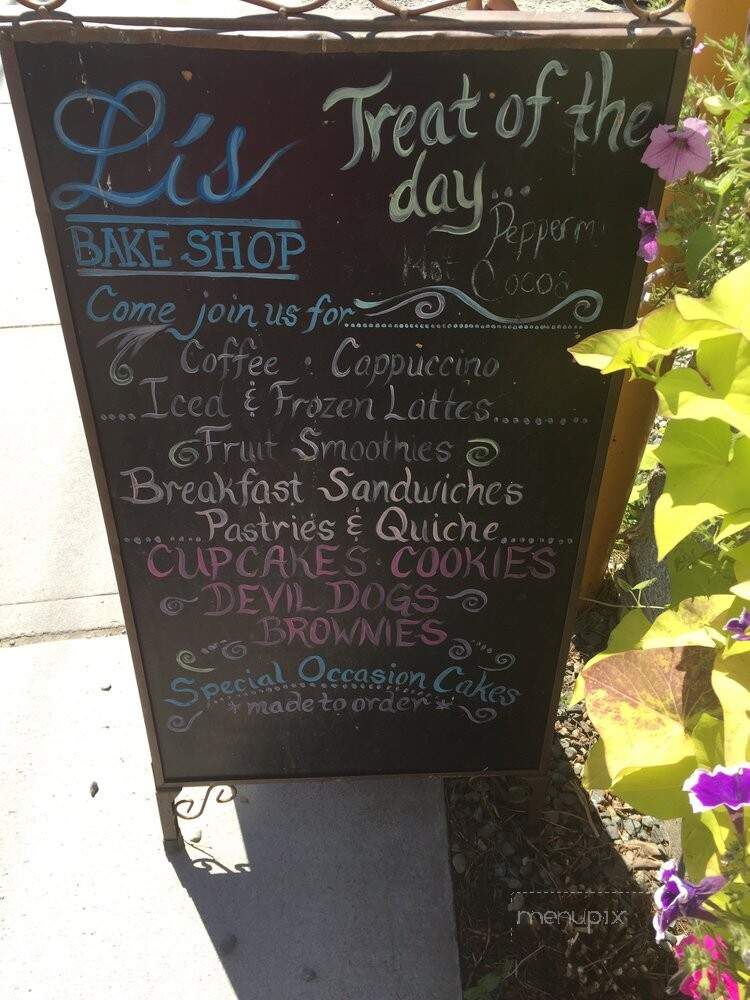 Lis
BAKE SHOP
Treat of the
day...
Pepperm
Hot Cocoa
Come join us for
Coffee · Cappuccino
....Iced & Frozen Lattes......
Fruit Smoothies
Breakfast Sandwiches
Pastries & Quiche
CUPCAKES · COOKIES
DEVIL DOGS
BROWNIES
Special Occasion Cakes
made to order
menupix